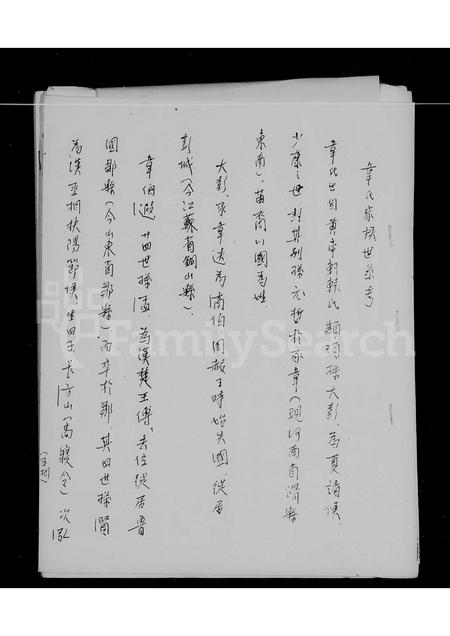 韋氏家族世系考
韋氏出自黃帝軒轅氏顓頊孫大彭,為夏諸侯、
少康之世,封其別孫元哲於豕韋(現河南省滑縣
東南),苗裔以國為姓
大彭、豕韋迭為商伯,周赧王時始失國,徙居
彭城(今江蘇省銅山縣)、
韋伯遐廿四世孫孟為漢楚王傅,去位徙居魯
國鄒縣(今山東省鄒縣),而卒於鄒,其四世孫賢
為漢丞相扶陽節侯,生四子,長方山(高寢令)次弘
FamilySearch